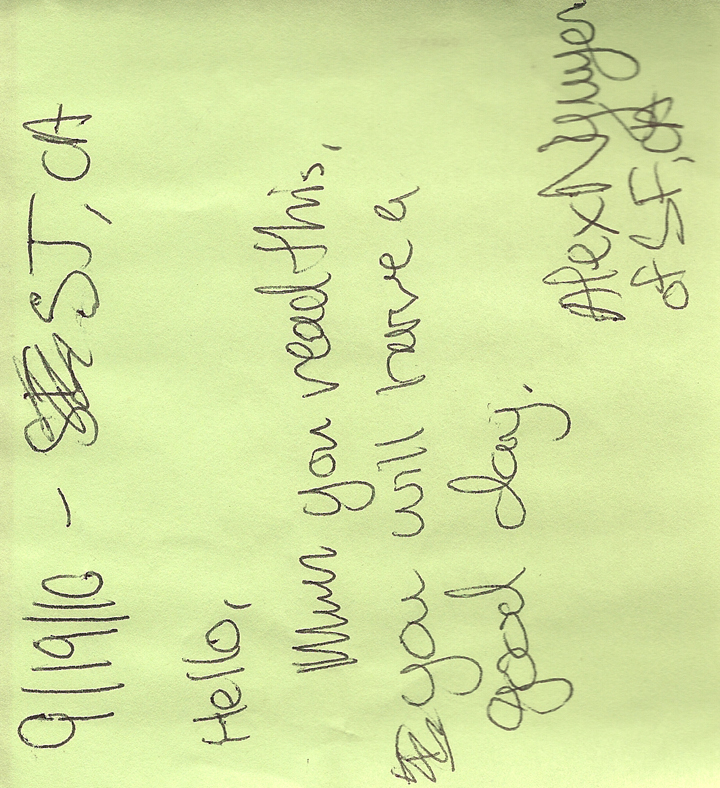 9/19/10 - SJ, CA
Hello,
When you read this,
you will have a
good day.
Alex Nguyen
of SF, CA